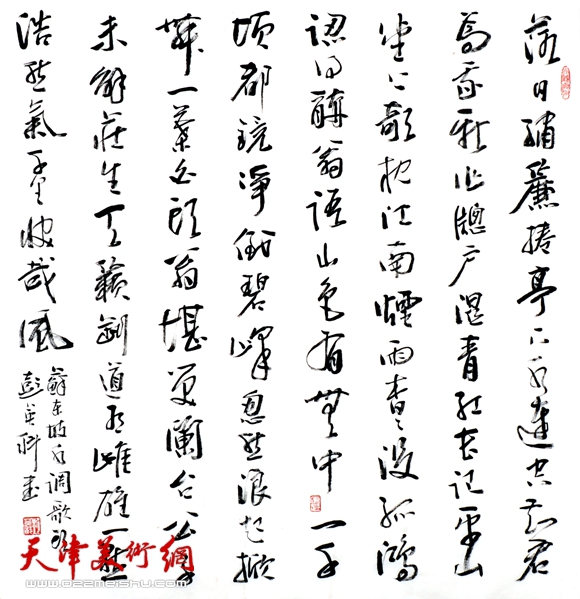 落日繡簾捲亭下水連空知君
為我新作牕户濕青红長記平山
堂上欹枕江南煙雨杳杳没孤鴻
認得醉翁語山色有無中一千
頃都鏡淨倒碧峰忽然浪起掀
舞一葉白頭翁堪笑瀾台公子
未解莊生天籟剛道有雌雄一點
浩然氣千里快哉風
蘇東坡水调歌頭
彭英科書
天津美術網
www.022meishu.com